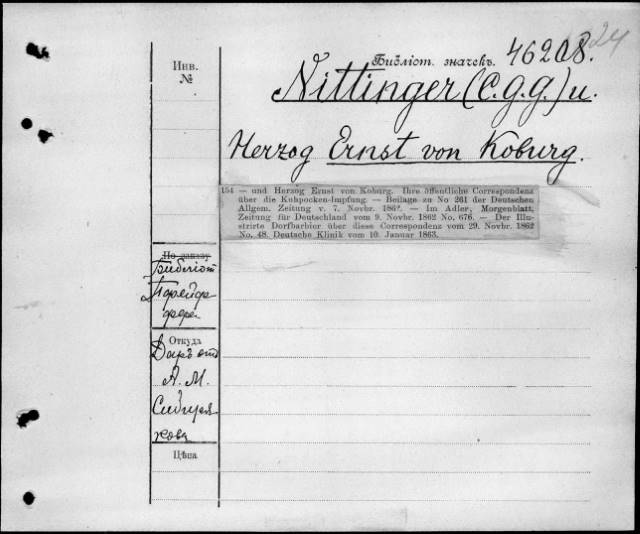 24
Библіот. значекъ. 46208.
Инв.
№
Nittinger (C.G.G.) u.
Herzog Ernst von Koburg.
154 — und Herzog Ernst von Koburg. Ihre öffentliche Correspondenz
über die Kuhpocken-Impfung. — Beilage zu No 261 der Deutschen
Allgem. Zeitung v. 7. Novbr. 186?. — Im Adler, Morgenblatt,
Zeitung für Deutschland vom 9. Novbr. 1862 No. 676. — Der Illu-
strirte Dorfbarbier über diese Correspondenz vom 29. Novbr. 1862
No. 48. Deutsche Klinik vom 10. Januar 1863.
По заказу
Библіот
Прейф-
фера
Откуда
Даръ отъ
А. М.
Сибиря-
кова
Цѣна